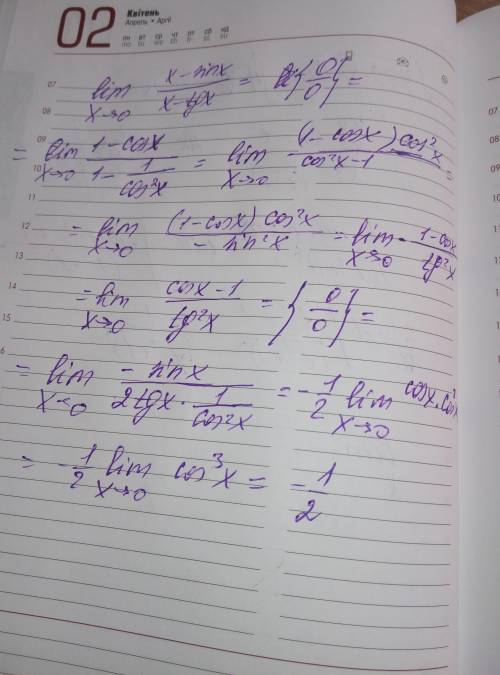 02 Квітень
Апрель • April
пн вт ср чт пт сб нд
07 lim x→0 (x - sinx)/(x - tgx) = {0/0} =
08
09 = lim x→0 (1 - cosx)/(1 - 1/cos²x) = lim x→0 (1 - cosx) cos²x/(cos²x - 1) =
10
11
12 = lim x→0 (1 - cosx) cos²x/(- sin²x) = lim x→0 - (1 - cosx)/(tg²x)
13
14 = lim x→0 (cosx - 1)/(tg²x) = {0/0} =
15
= lim x→0 (- sinx)/(2tgx · 1/cos²x) = - 1/2 lim x→0 cosx · cos²x
= - 1/2 lim x→0 cos³x = - 1/2